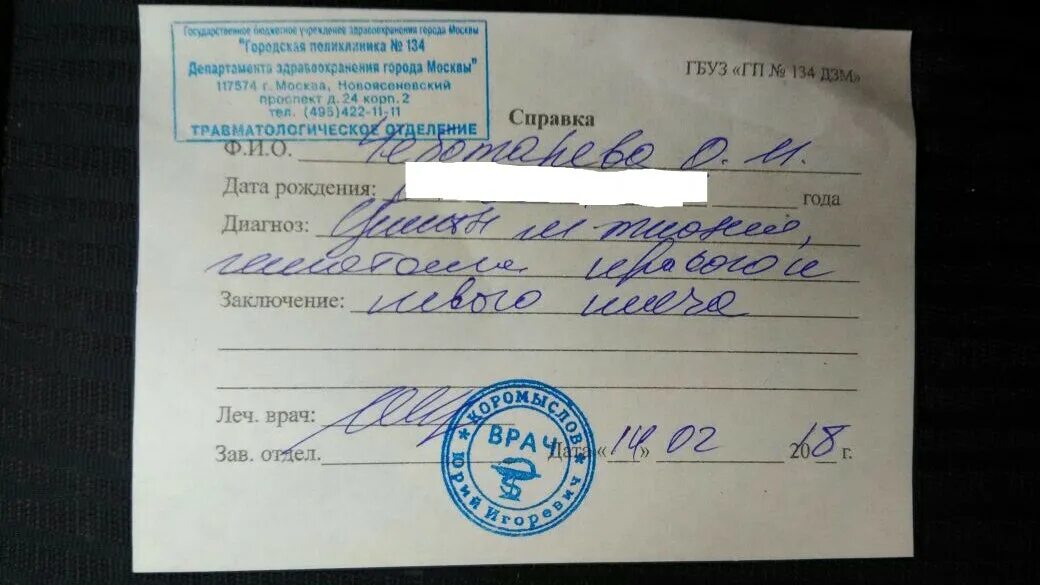 Государственное бюджетное учреждение здравоохранения города Москвы
"Городская поликлиника № 134
Департамента здравоохранения города Москвы"
117574 г. Москва, Новоясеневский
проспект д. 24 корп. 2
тел. (495)422-11-11
ТРАВМАТОЛОГИЧЕСКОЕ ОТДЕЛЕНИЕ
ГБУЗ «ГП № 134 ДЗМ»
Справка
Ф.И.О. Чеботарева О. И.
Дата рождения: года
Диагноз: Ушиб м тканей,
гематома правого и
Заключение: левого плеча
Леч. врач:
Зав. отдел. Дата «14» 02 2018 г.
КОРОМЫСЛОВ
ВРАЧ
Юрий Игоревич